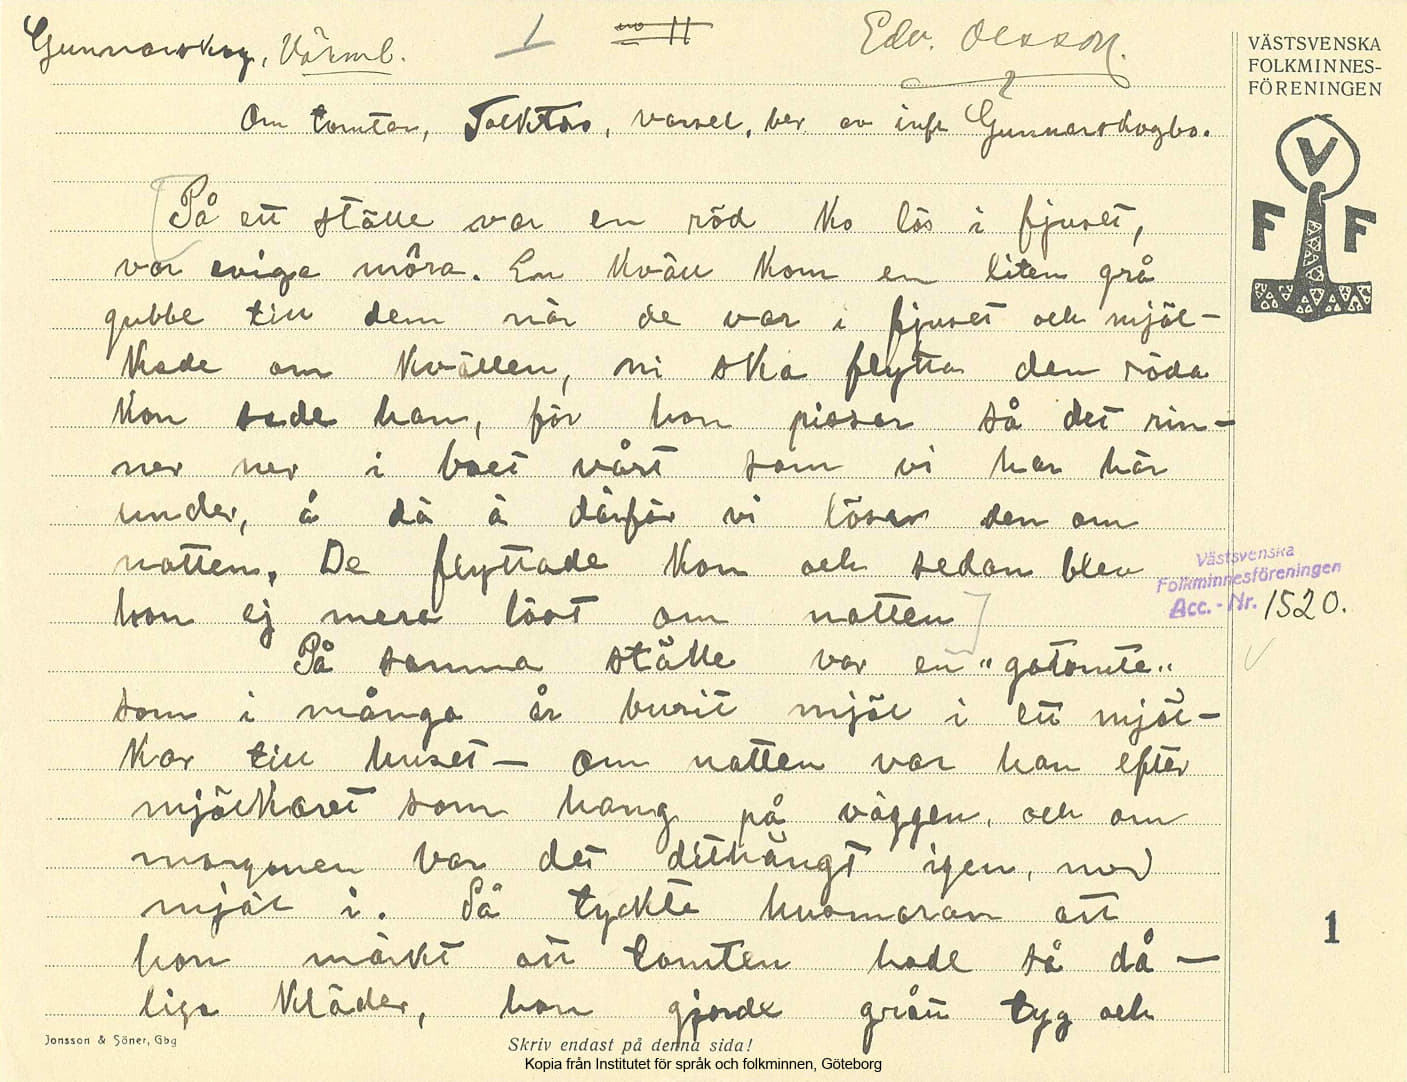 Gunnarskog, Värml.
1
no 11
Edv. Olsson.
VÄSTSVENSKA
FOLKMINNES-
FÖRENINGEN
V
F F
Om tomten, Folktro, varsel, ber av inft Gunnarskogbo.
På ett ställe var en röd ko lös i fjuset,
var eviga môra. En kväll kom en liten grå
gubbe till dem när de var i fjuset och mjöl-
kade om kvällen, ni ska flytta den röda
kon sade han, för hon pissar så det rin-
ner ner i boet vårt som vi har här
under, å dä ä därför vi löser den om
natten. De flyttade kon och sedan blev
hon ej mera löst om natten
På samma ställe var en "gotomte"
som i många år burit mjöl i ett mjöl-
kar till huset – om natten var han efter
mjölkaret som hang på väggen, och om
morgonen var det dithängt igen, med
mjöl i. Så tyckte husmoran att
hon märkt att tomten hade så då-
liga kläder, hon gjorde grått tyg och
Västsvenska
Folkminnesföreningen
Acc. - Nr. 1520.
1
Jonsson & Söner, Gbg
Skriv endast på denna sida!
Kopia från Institutet för språk och folkminnen, Göteborg